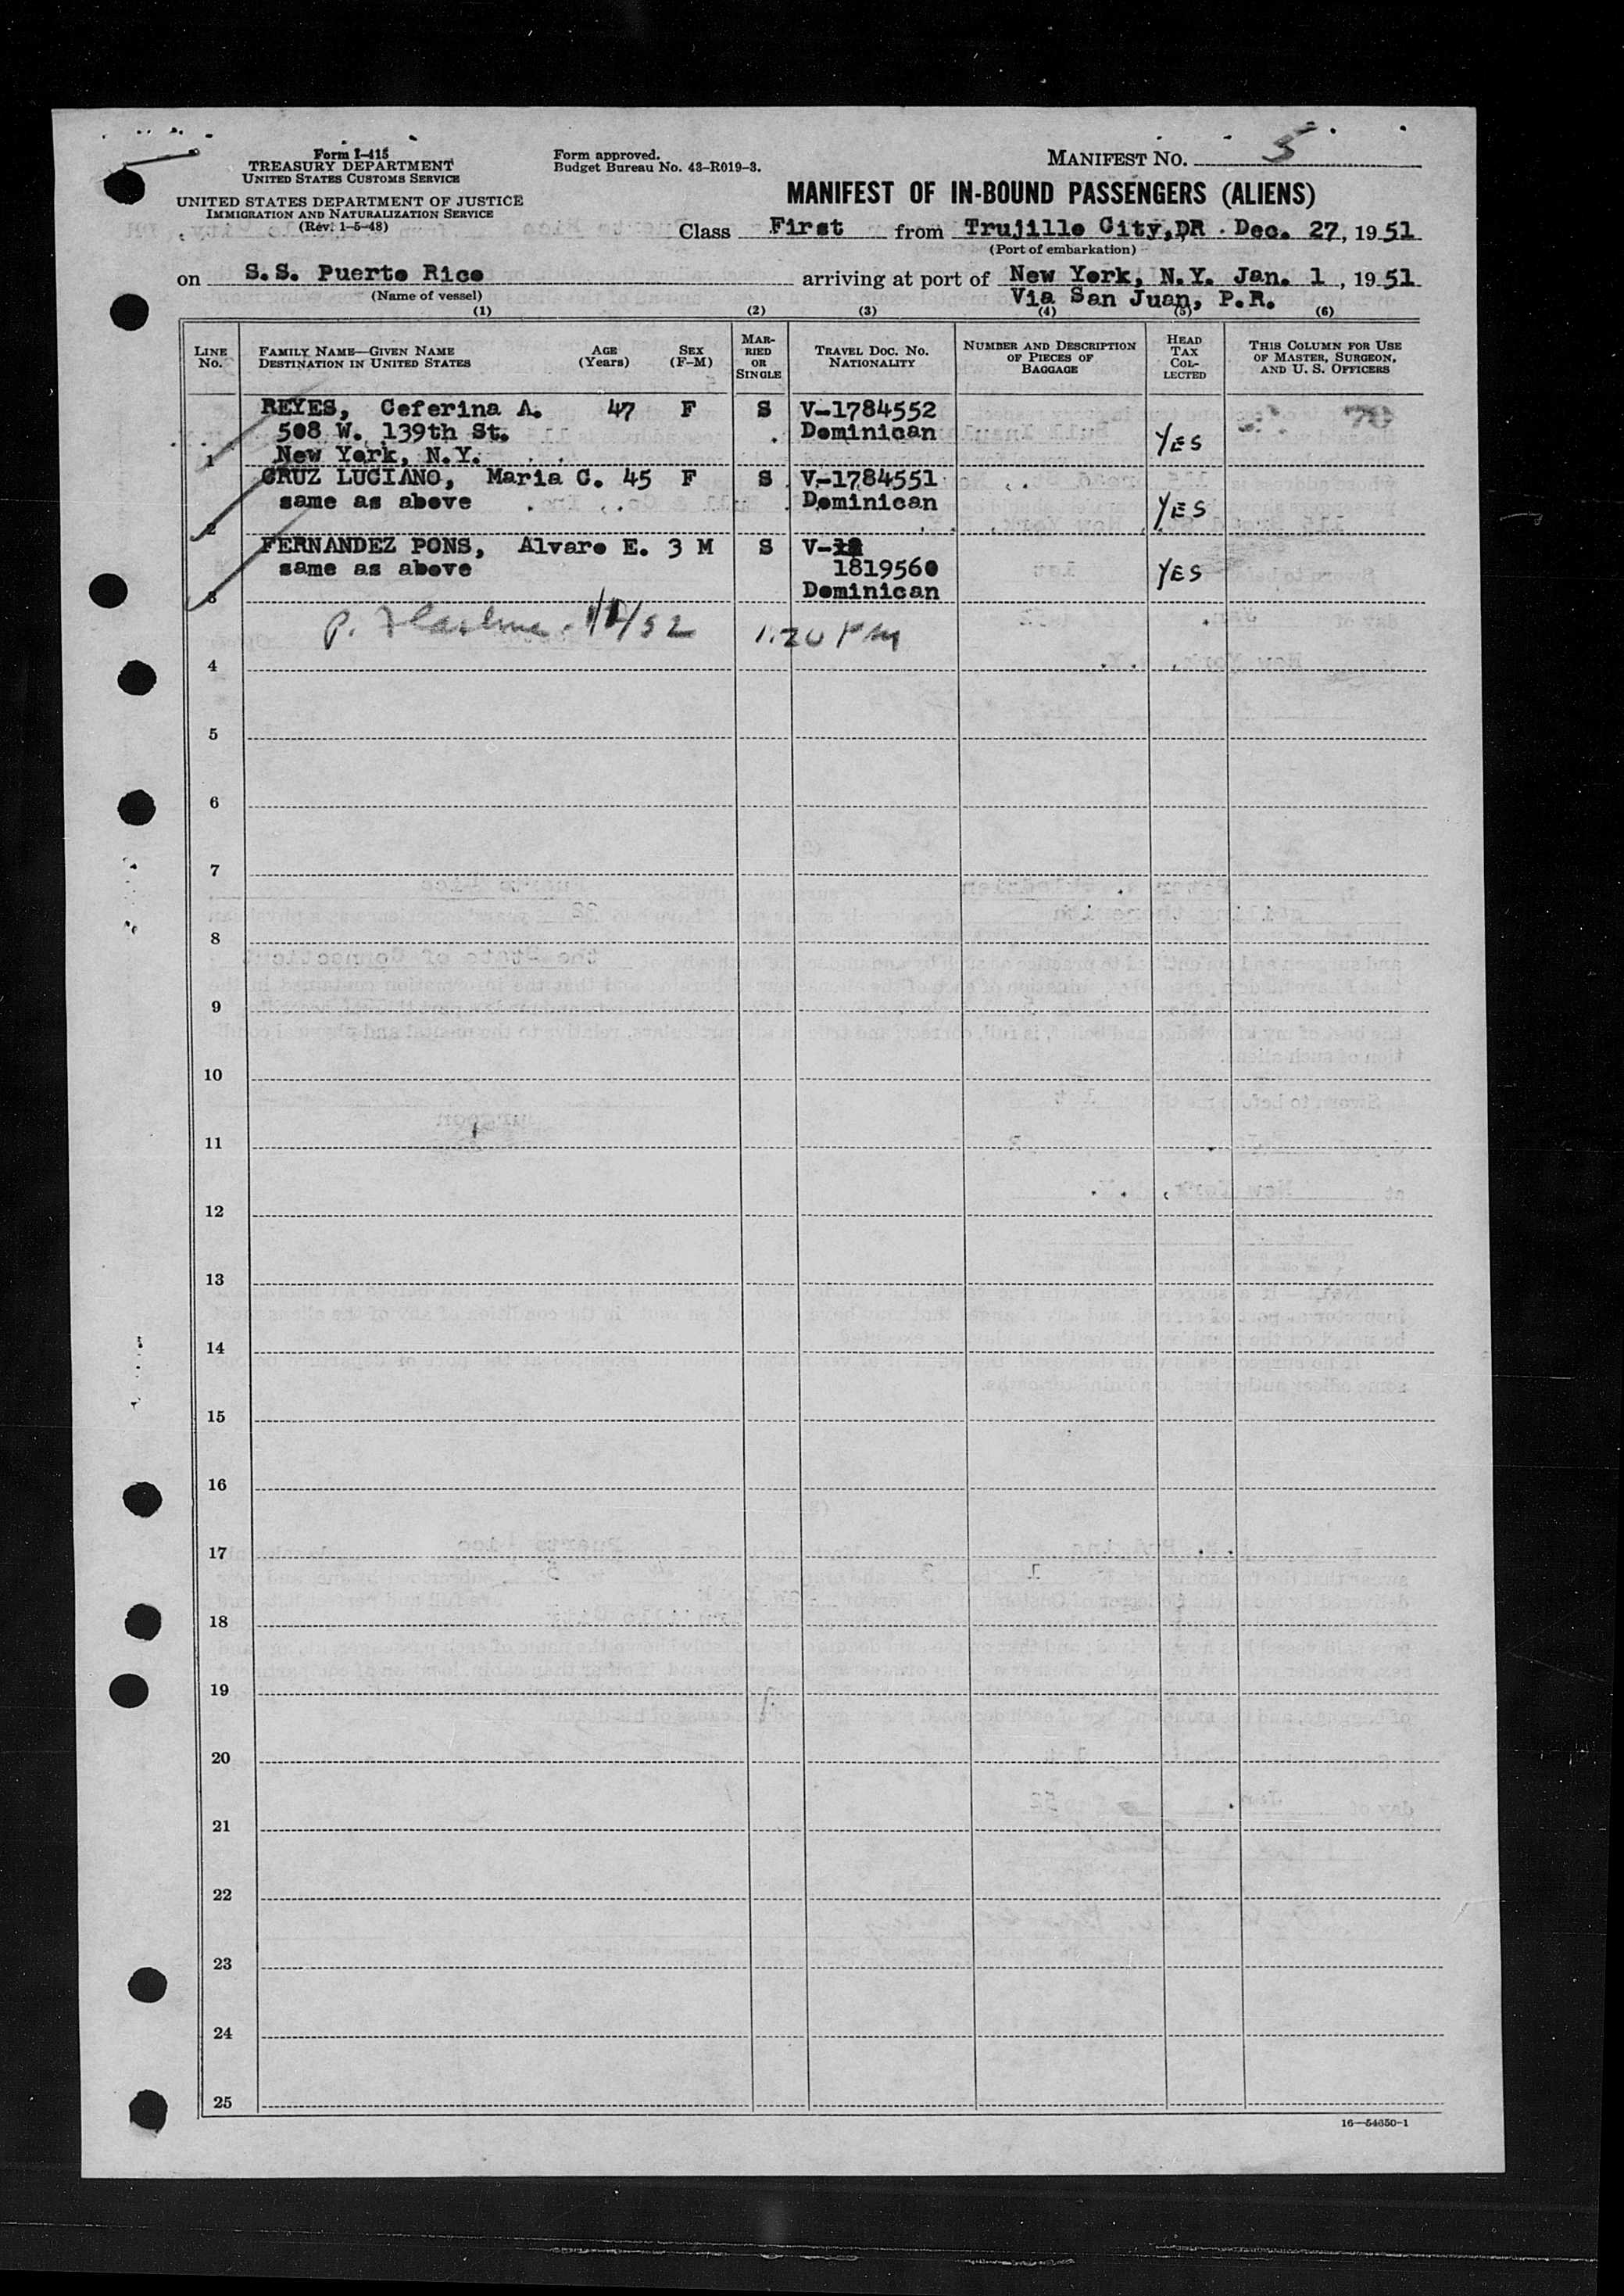 Form I-415
TREASURY DEPARTMENT
UNITED STATES CUSTOMS SERVICE
UNITED STATES DEPARTMENT OF JUSTICE
IMMIGRATION AND NATURALIZATION SERVICE
(Rev. 1-5-48)
Form approved.
Budget Bureau No. 43-R019-3.
MANIFEST NO. 5
MANIFEST OF IN-BOUND PASSENGERS (ALIENS)
Class First from Trujillo City, DR. Dec. 27, 1951
(Port of embarkation)
on S.S. Puerto Rico arriving at port of New York, N.Y. Jan. 1, 1951
(Name of vessel) Via San Juan, P.R.
(1) (2) (3) (4) (5) (6)
LINE No. FAMILY NAME—GIVEN NAME DESTINATION IN UNITED STATES AGE (Years) SEX (F-M) MARRIED OR SINGLE TRAVEL DOC. NO. NATIONALITY NUMBER AND DESCRIPTION OF PIECES OF BAGGAGE HEAD TAX COLLECTED THIS COLUMN FOR USE OF MASTER, SURGEON, AND U. S. OFFICERS
REYES, Ceferina A. 47 F S V-1784552
508 W. 139th St. Dominican YES
1 New York, N.Y.
CRUZ LUCIANO, Maria C. 45 F S V-1784551
same as above Dominican YES
2
FERNANDEZ PONS, Alvaro E. 3 M S V-18
same as above 1819560 YES
3 Dominican
P. 1/1/52 1:20 PM
4
5
6
7
8
9
10
11
12
13
14
15
16
17
18
19
20
21
22
23
24
25
16—54650-1